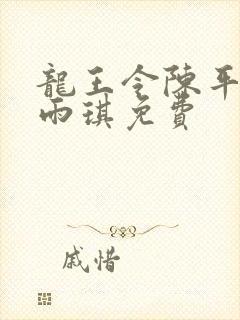 龍王令陳平
雨琪免費
戚惜